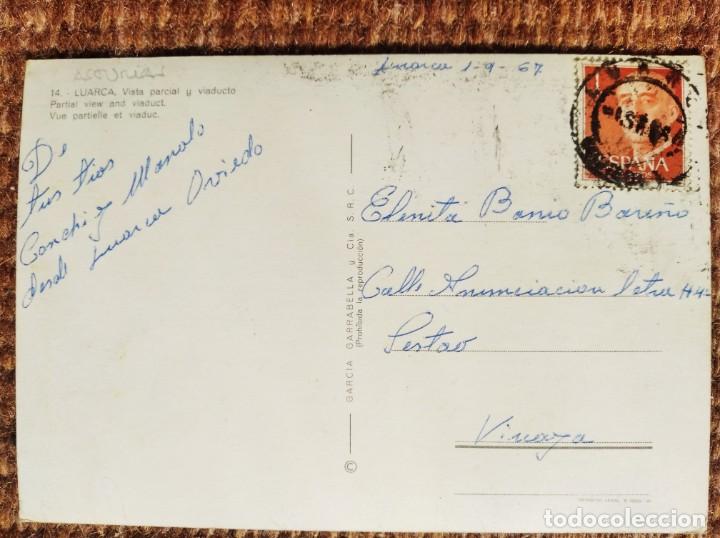 ASTURIAS
14. - LUARCA, Vista parcial y viaducto
Partial view and viaduct.
Vue partielle et viaduc.
Luarca 1-9-67
1
ESPAÑA
De
tus tios
Conchi y Manolo
desde Luarca Oviedo
GARCIA GARRABELLA y Cia S.R.C.
(Prohibida la reproducción)
©
Elenita Bareño
Calle Anunciacion letra
Sestao
Vizcaya
todocoleccion
todocoleccion.net